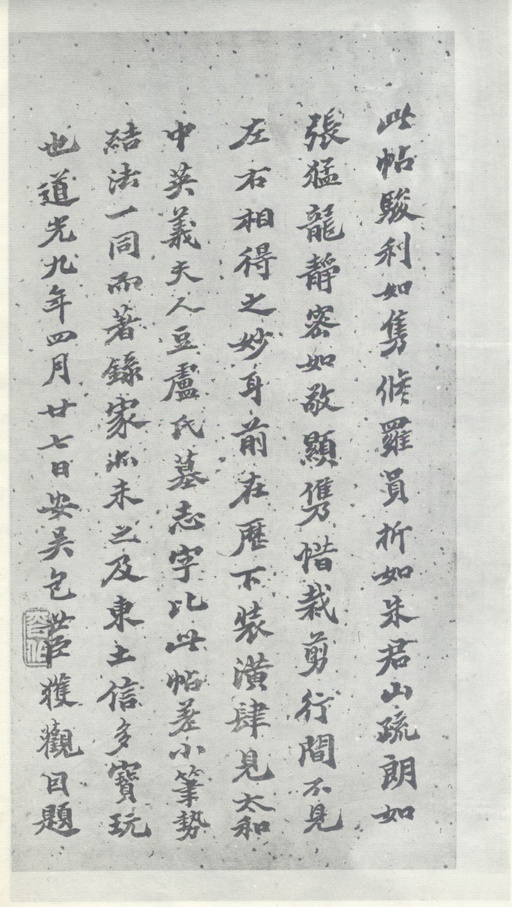 此帖駿利如雋脩羅員折如朱君山疏朗如
張猛龍靜密如敬顯儁惜裁剪行間不見
左右相得之妙身前在歷下装潢肆見太和
中英義夫人豆盧氏墓志字比此帖差小筆勢
結法一同而著錄家亦未之及東土信多寶玩
也道光九年四月廿七日安吳包世臣獲觀因題